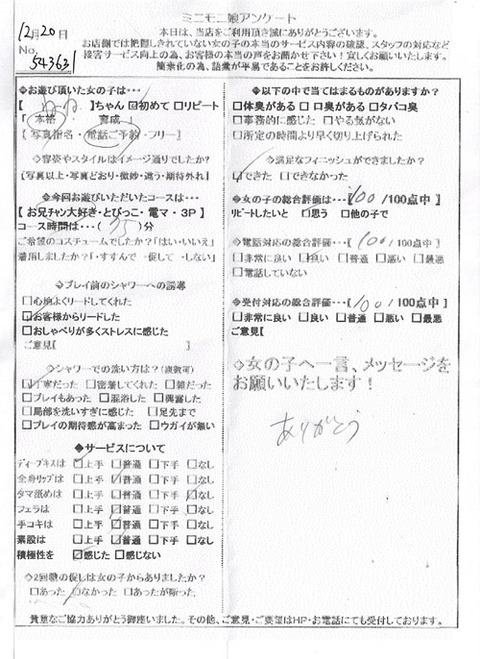 ミニモニ娘アンケート
12月20日
No. 543631
本日は、当店をご利用頂き誠にありがとうございます。
お店側では把握しきれていない女の子の本当のサービス内容の確認、スタッフの対応など
接客サービス向上の為、お客様の本当の声をお聞かせ下さい！宜しくお願いいたします。
簡素化の為、語彙が平易であることをお許しください。
◆お遊び頂いた女の子は…
】ちゃん ☑初めて ☐リピート
「 本格 育成 」
【 写真指名・電話ご予約・フリー 】
◇容姿やスタイルはイメージ通りでしたか?
【写真以上・写真どおり・微妙・違う・期待外れ】
◆今回お遊びいただいたコースは…
【お兄チャン大好き・とびっこ・電マ・3P】
コース時間は…( 75 )分
ご希望のコスチュームでしたか?「はい・いいえ」
着頂しましたか?「・すすんで ・促して ・しない」
◇プレイ前のシャワーへの誘導
☐心地よくリードしてくれた
☑お客様からリードした
☐おしゃべりが多くストレスに感じた
ご意見【 】
◇シャワーでの洗い方は？(複数可)
☑丁寧だった ☐密着してくれた ☐雑だった
☐プレイもあった ☐混浴した ☐興奮した
☐局部を洗いすぎに感じた ☐足先まで
☐プレイの期待感が高まった ☐ウガイが無い
◆サービスについて
ディープキスは ☐上手 ☑普通 ☐下手 ☐なし
全身リップは ☐上手 ☑普通 ☐下手 ☐なし
タマ舐めは ☐上手 ☐普通 ☐下手 ☑なし
フェラは ☐上手 ☑普通 ☐下手 ☐なし
手コキは ☐上手 ☑普通 ☐下手 ☐なし
素股は ☐上手 ☑普通 ☐下手 ☐なし
積極性を ☑感じた ☐感じない
◇2回戦の促しは女の子からありましたか?
☐あった ☑なかった ☐あったが断った
◆以下の中で当てはまるものがありますか?
☐体臭がある ☐口臭がある ☐タバコ臭
☐事務的に感じた ☐やる気がない
☐所定の時間より早く切り上げられた
◇満足なフィニッシュができましたか?
☑できた ☐できなかった
◆女の子の総合評価は…【 100 /100点中】
リピートしたいと ☐思う ☐他の子で
◇電話対応の総合評価…【 100 /100点中】
☐非常に良い ☑良い ☐普通 ☐悪い ☐最悪
☐電話していない
◆受付対応の総合評価…【 100 /100点中】
☐非常に良い ☐良い ☐普通 ☐悪い ☐最悪
ご意見【
◇女の子へ一言、メッセージを
お願いいたします！
ありがとう
貴重なご協力ありがとう御座いました。その他、ご意見・ご要望はHP・お電話にても受付しております。